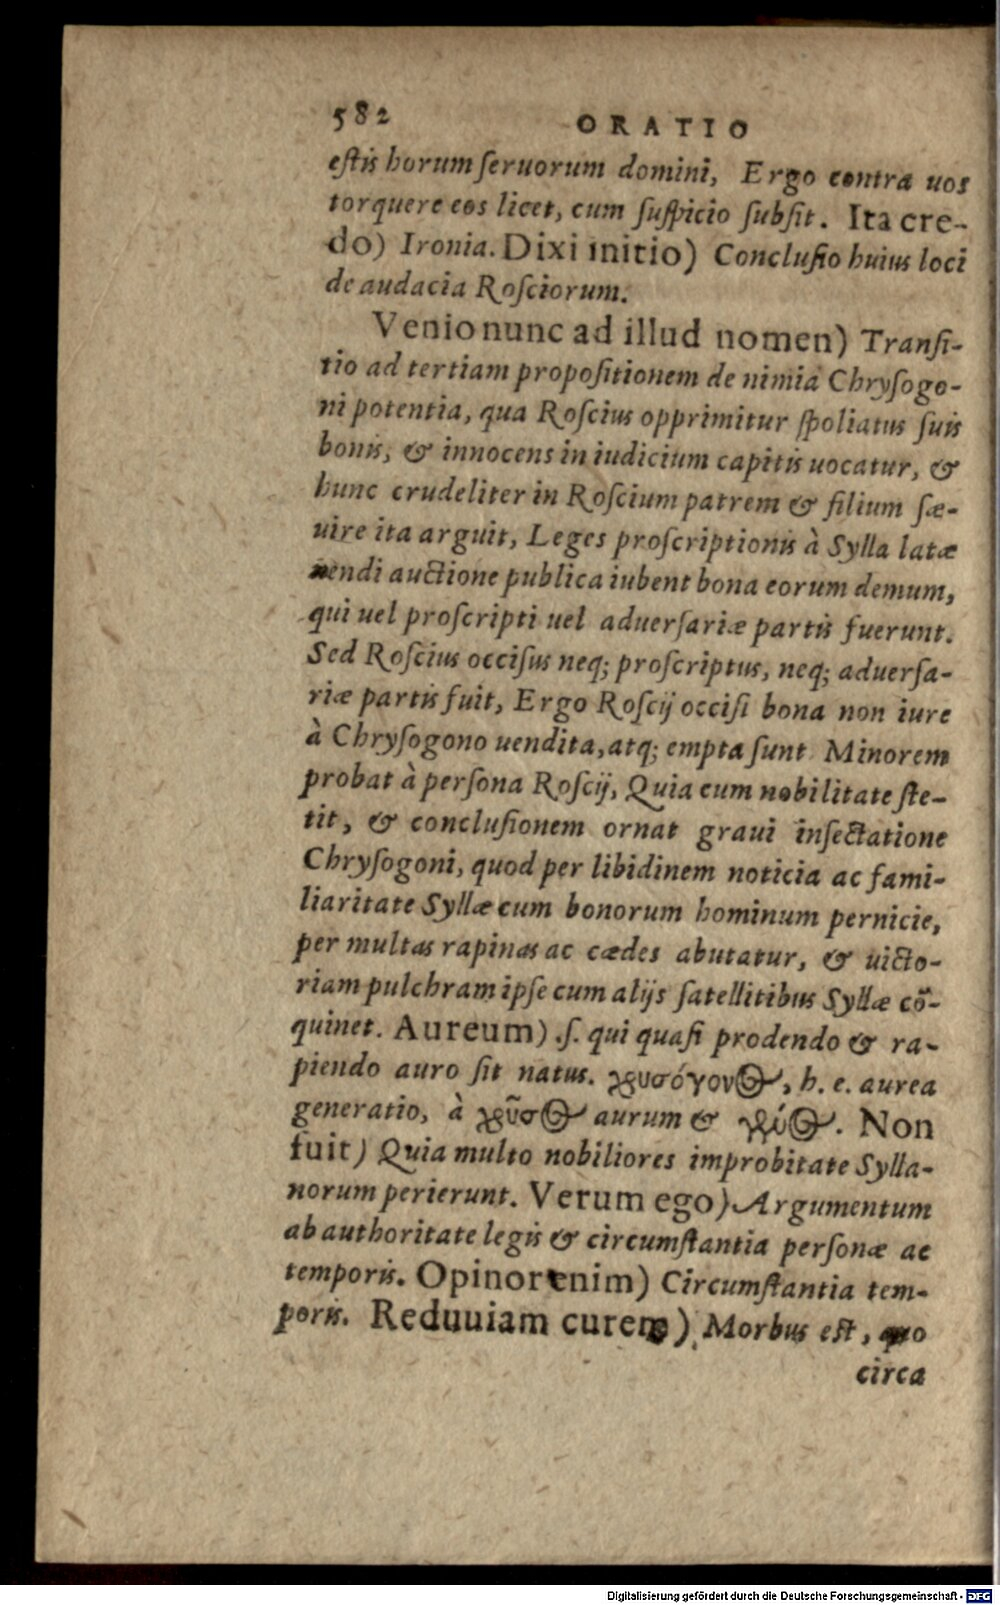 582 ORATIO
estis horum seruorum domini, Ergo contra uos
torquere eos licet, cum suspicio subsit. Ita cre-
do) Ironia. Dixi initio) Conclusio huius loci
de audacia Rosciorum.
Venio nunc ad illud nomen) Transi-
tio ad tertiam propositionem de nimia Chrysogo-
ni potentia, qua Roscius opprimitur spoliatus suis
bonis, & innocens in iudicium capitis uocatur, &
hunc crudeliter in Roscium patrem & filium sæ-
uire ita arguit, Leges proscriptionis à Sylla latæ
uendi auctione publica iubent bona eorum demum,
qui uel proscripti uel aduersariæ partis fuerunt.
Sed Roscius occisus neq; proscriptus, neq; aduersa-
riæ partis fuit, Ergo Roscij occisi bona non iure
à Chrysogono uendita, atq; empta sunt. Minorem
probat à persona Roscij, Quia cum nobilitate ste-
tit, & conclusionem ornat graui insectatione
Chrysogoni, quod per libidinem noticia ac fami-
liaritate Syllæ cum bonorum hominum pernicie,
per multas rapinas ac cædes abutatur, & uicto-
riam pulchram ipse cum alijs satellitibus Syllæ cō-
quinet. Aureum) .s. qui quasi prodendo & ra-
piendo auro sit natus. χρυσόγονος, h. e. aurea
generatio, à χρῦσος aurum & γόνος. Non
fuit) Quia multo nobiliores improbitate Sylla-
norum perierunt. Verum ego) Argumentum
ab authoritate legis & circumstantia personæ ac
temporis. Opinor enim) Circumstantia tem-
poris. Reduuiam curem) Morbus est, quo
circa
Digitalisierung gefördert durch die Deutsche Forschungsgemeinschaft - DFG